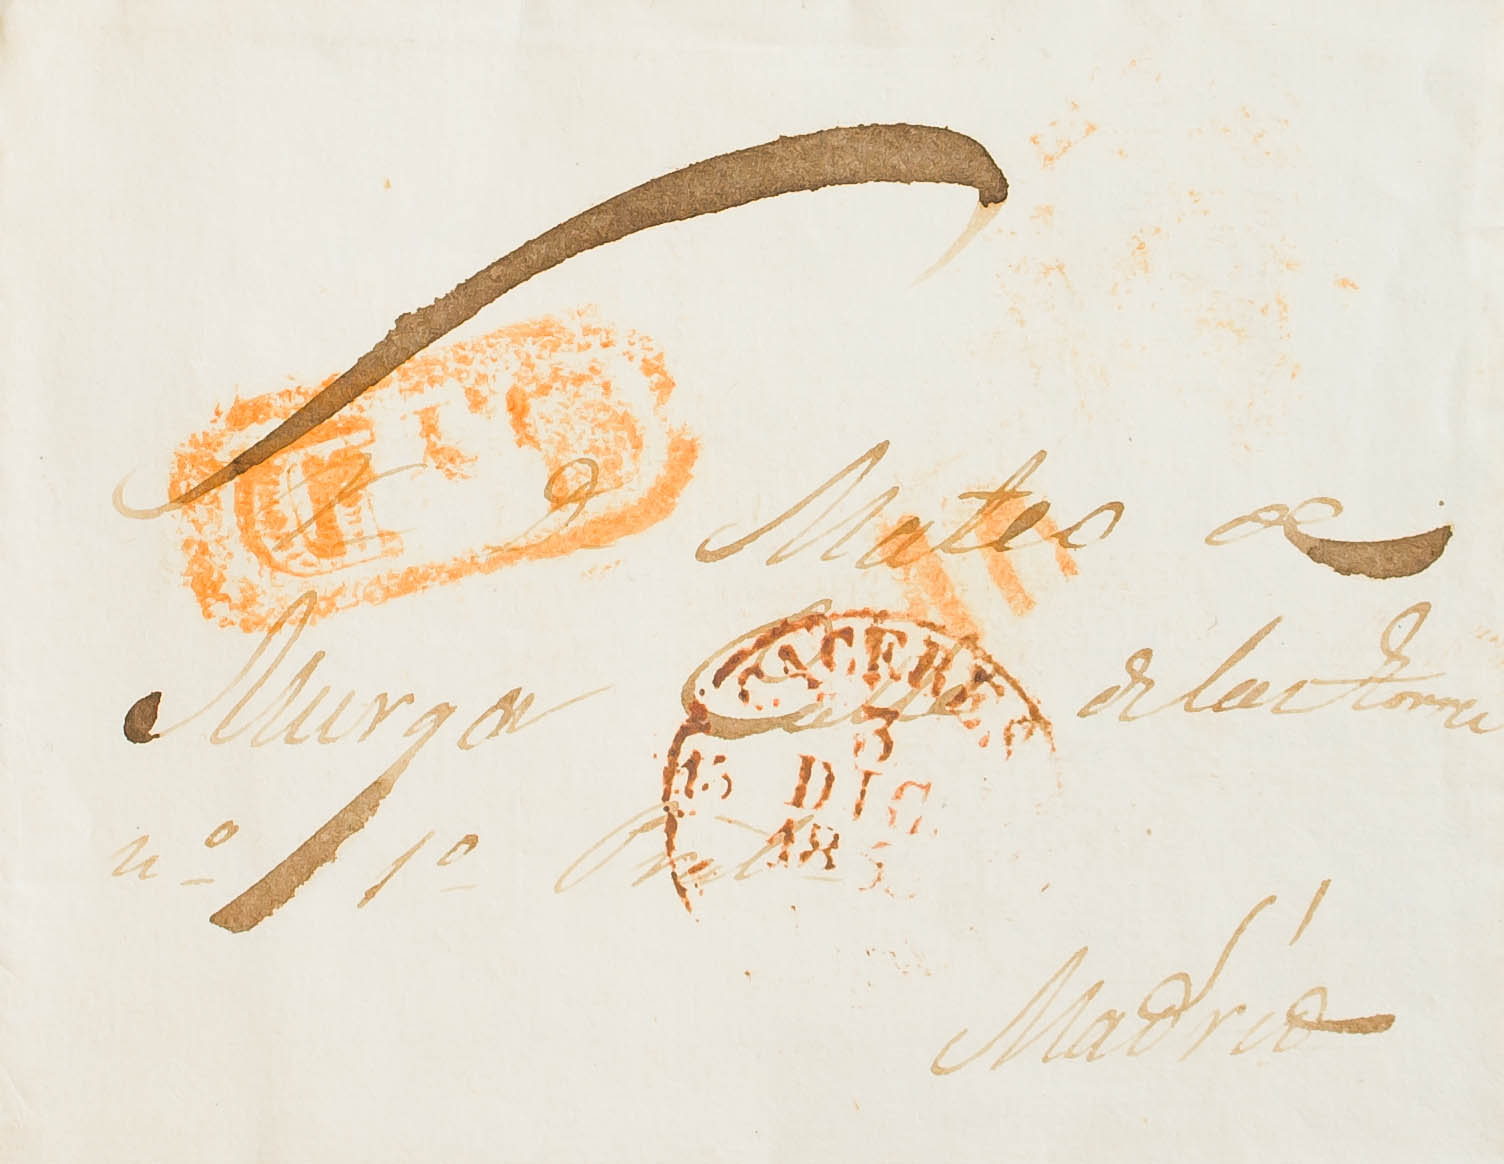 Sr Dn Mateo de
Murga Calle de las Torres
nº 1º Pral
Madrid
CACERES
3
15 DIC.
185